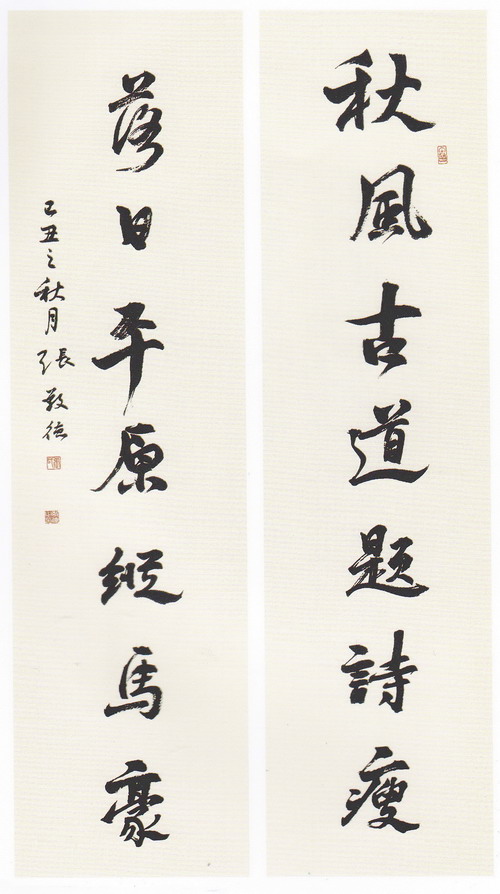 秋風古道題詩瘦
落日平原縱馬豪
己丑之秋月張敬德